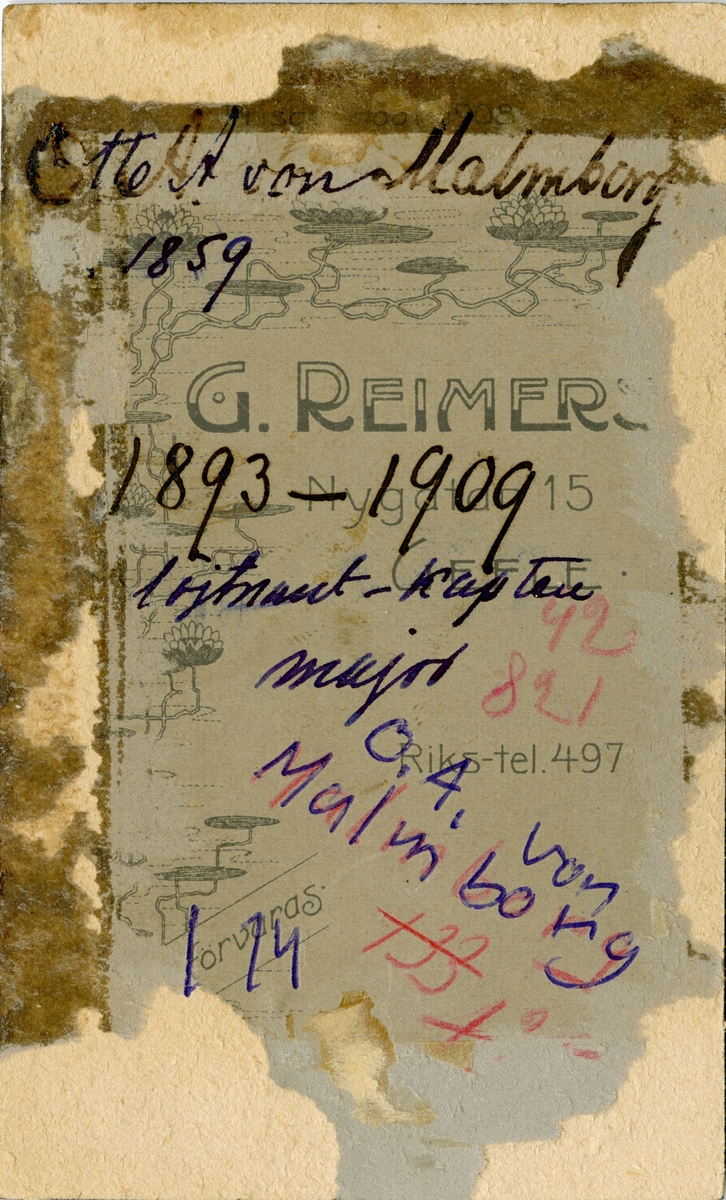 Otto A von Malmborg
1859
G. REIMERS
1893 – 1909
Nygatan 15
GEFLE.
löjtnant – kapten
42
major
821
O. A. von
Riks-tel. 497
Malmborg
örvaras.
1 74
33